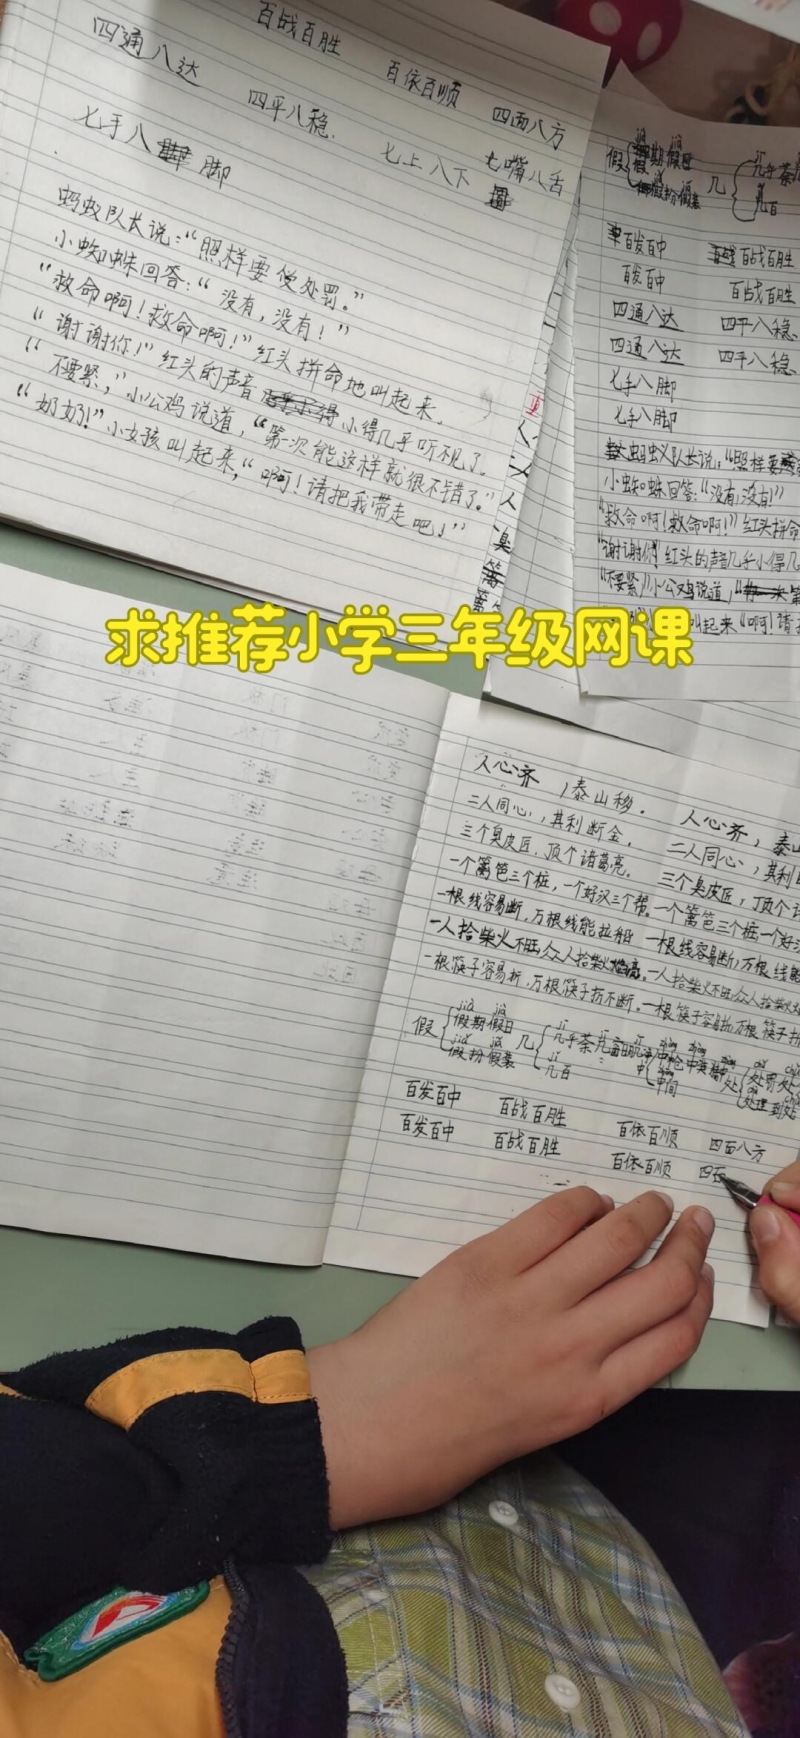 百战百胜 百依百顺 四面八方
四通八达 四平八稳. 七嘴八舌
七手八脚 七上八下
蚂蚁队长说:“照样要受处罚。”
小蜘蛛回答:“没有,没有!”
“救命啊!救命啊!”红头拼命地叫起来。
“谢谢你!”红头的声音小得几乎听不见了。
“不要紧,”小公鸡说道,“第一次能这样就很不错了。”
“奶奶!”小女孩叫起来,“啊!请把我带走吧!”
假 假期 假日 几 几乎 茶
假扮 假装 几百
百发百中 百战百胜
百发中 百战百胜
四通八达 四平八稳
四通八达 四平八稳
七手八脚
七手八脚
蚂蚁队长说:“照样要
小蜘蛛回答:“没有,没有!”
“救命啊!救命啊!”红头拼命
“谢谢你!红头的声音几乎小得几
“不要紧,”小公鸡说道,“
叫起来“啊!请
求推荐小学三年级网课
人心齐,泰山移. 人心齐,泰山
二人同心,,其利断金. 二人同心,,其利
三个臭皮匠,顶个诸葛亮. 三个臭皮匠,顶个
一个篱笆三个桩,一个好汉三个帮。一个篱笆三个桩一个好汉
一根线容易断,万根线能拉船 一根线容易断,万根线能
一人拾柴火不旺,众人拾柴火焰高.一人拾柴火不旺,众人拾柴火
一根筷子容易折,万根筷子折不断.一根筷子容易折万根筷子折
假 假期 假日 几 几乎 茶几 中 处 处罚
假扮 假装 几百 中间 处理 到处
百发百中 百战百胜 百依百顺 四面八方
百发百中 百战百胜 百依百顺 四面